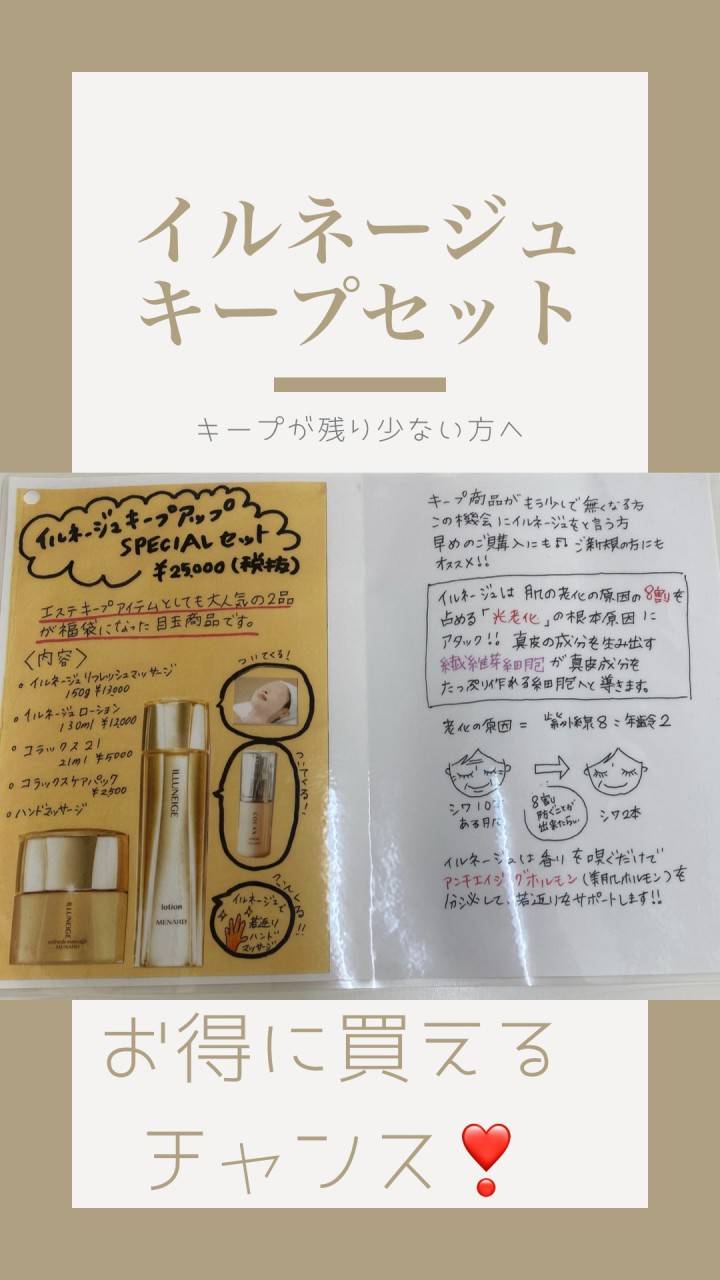 イルネージュ
キープセット
キープが残り少ない方へ
イルネージュキープアップ
SPECIALセット
¥25,000(税抜)
エステキープアイテムとしても大人気の2品
が福袋になった目玉商品です。
〈内容〉
・イルネージュリフレッシュマッサージ
150g ¥13,000
・イルネージュローション
130ml ¥12,000
・コラックス21
21ml ¥5,000
・コラックスケアパック
¥2,500
・ハンドマッサージ
ついてくる!
ついてくる!
イルネージュで
若返り
ハンド
マッサージ
ILLUNEIGE
lotion
MENARD
ILLUNEIGE
refresh massage
MENARD
キープ商品がもう少しで無くなる方
この機会にイルネージュをと言う方
早めのご購入にも♫ ご新規の方にも
オススメ!!
イルネージュは 肌の老化の原因の8割を
占める「光老化」の根本原因に
アタック!! 真皮の成分を生み出す
繊維芽細胞が真皮成分を
たっぷり作れる細胞へと導きます。
老化の原因 = 紫外線8:年齢2
シワ10本
ある肌
8割
防ぐことが
出来たらい
シワ2本
イルネージュは香りを嗅ぐだけで
アンチエイジングホルモン(美肌ホルモン)を
分泌して、若返りをサポートします!!
お得に買える
チャンス❣️